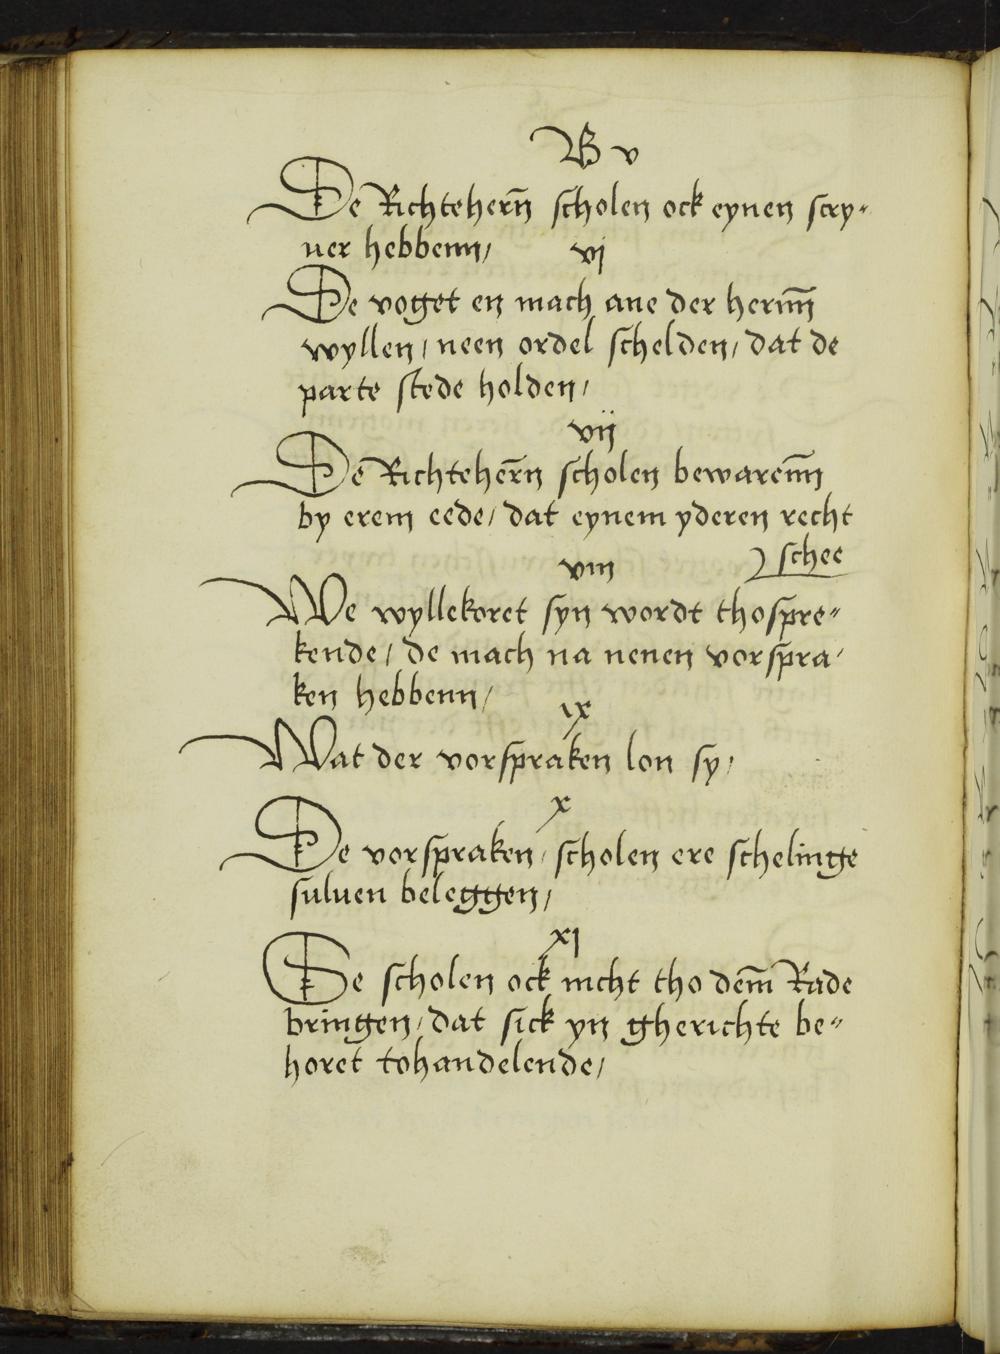 B v
De Richtehern̄ scholen ock eynen scry-
uer hebbenn/
vi
De voget en mach ane der hernn̄
wyllen/ neen ordel schelden/ dat de
parte stede holden/
vij
De Richtehern̄ scholen bewarenn̄
by erem eede/ dat eynem yderen recht
schee
viii
We wyllekoret syn wordt thospre-
kende/ de mach na nenen vorspra-
ken hebbenn/
ix
Wat der vorspraken lon sy/
x
De vorspraken/ scholen ere schelinge
suluen beleggen/
xi
Se scholen ock nicht tho dem̄ Rade
bringen/ dat sick yn gherichte be-
horet tohandelende/